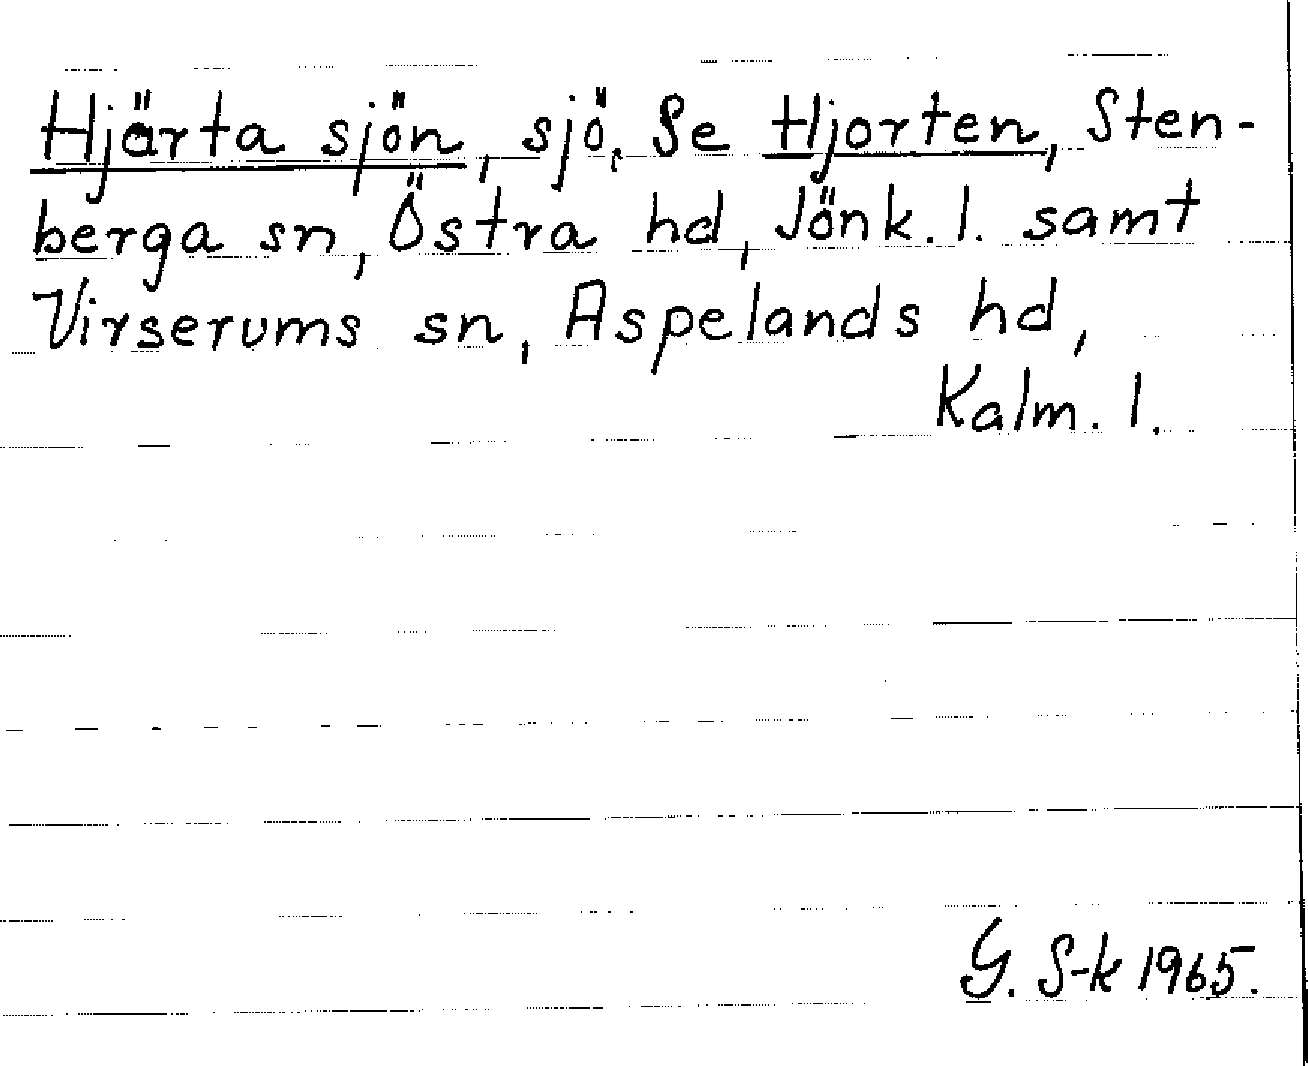 Hjärta sjön, sjö. Se Hjorten, Sten-
berga sn, Östra hd, Jönk. l. samt
Virserums sn, Aspelands hd,
Kalm. l.
G. S-k 1965.